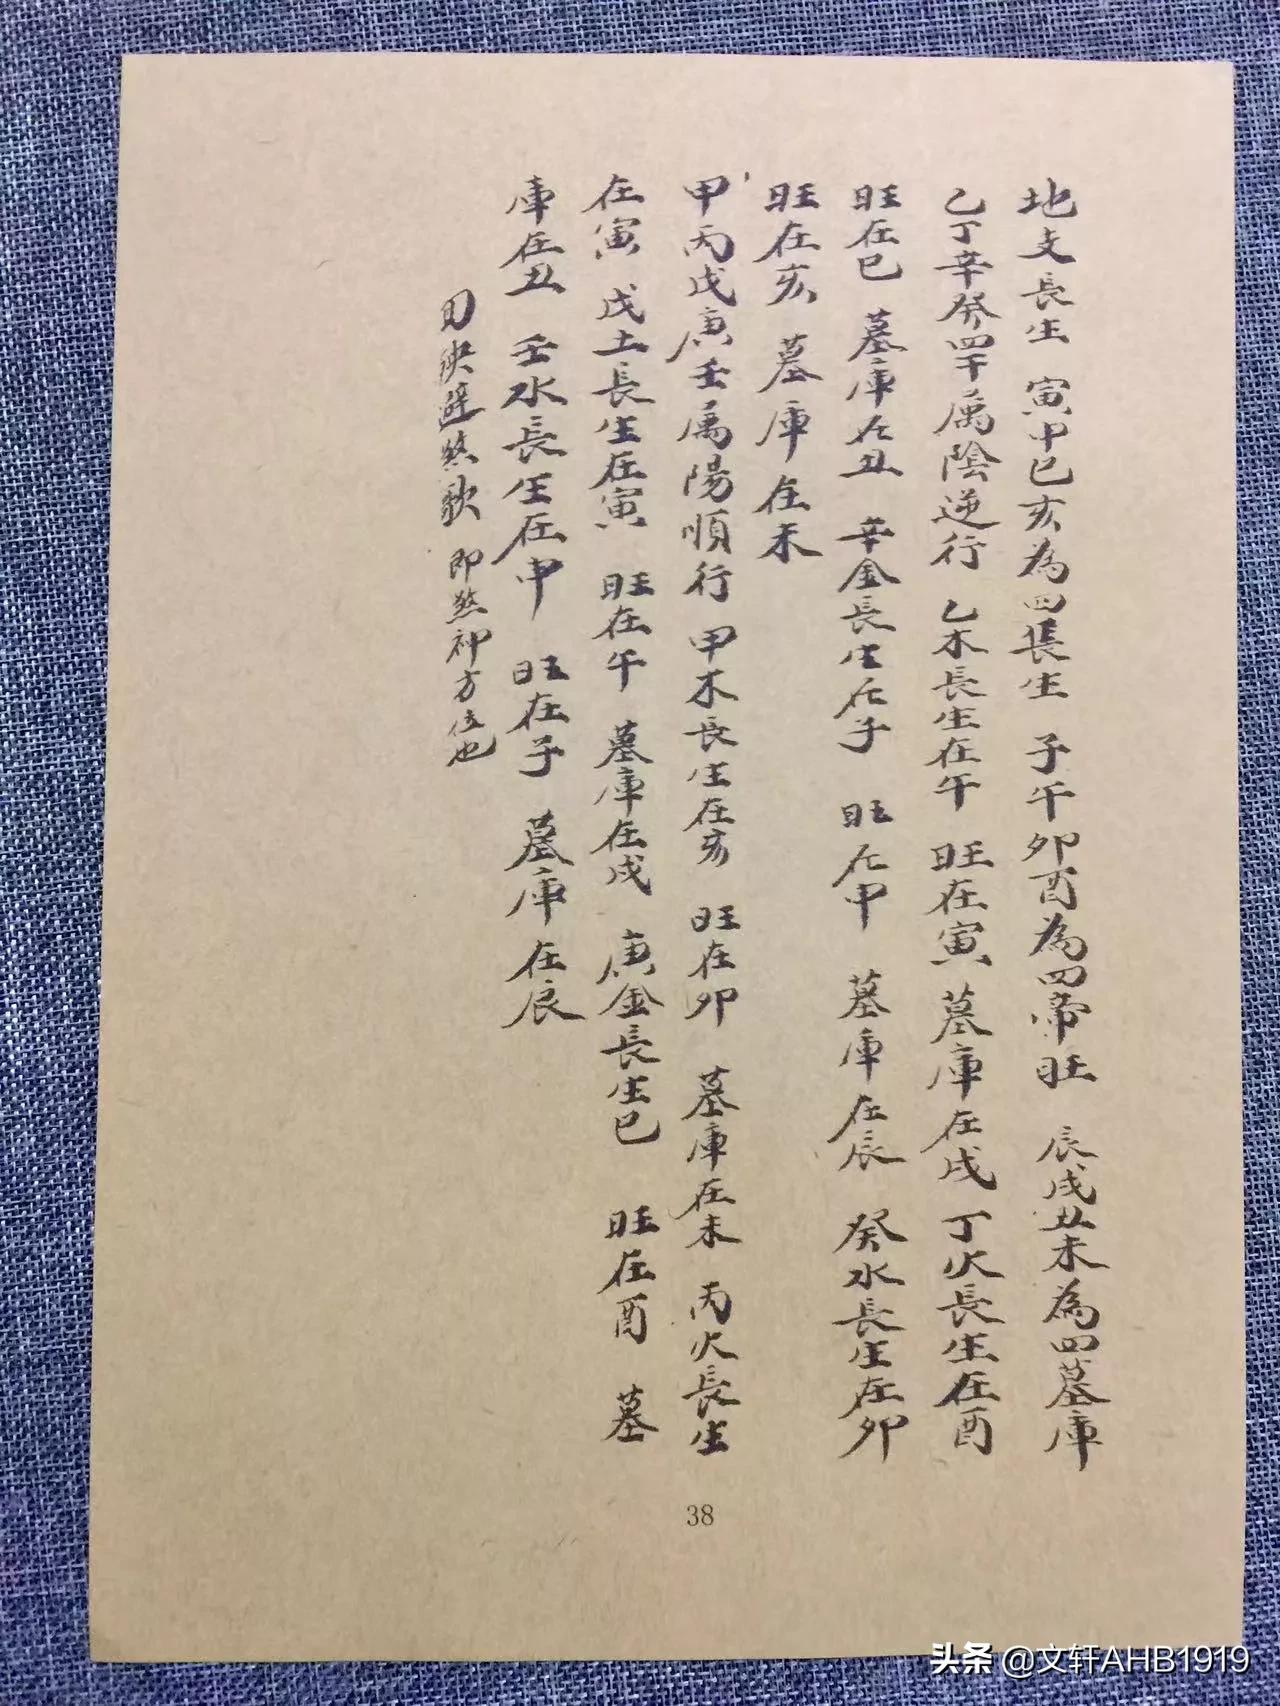 地支長生 寅申巳亥為四長生 子午卯酉為四帝旺 辰戌丑未為四墓庫
乙丁辛癸四干属陰逆行 乙木長生在午 旺在寅 墓庫在戌 丁火長生在酉
旺在巳 墓庫在丑 辛金長生在子 旺在申 墓庫在辰 癸水長生在卯
旺在亥 墓庫在未
甲丙戊庚壬属陽順行 甲木長生在亥 旺在卯 墓庫在未 丙火長生
在寅 戊土長生在寅 旺在午 墓庫在戌 庚金長生巳 旺在酉 墓
庫在丑 壬水長生在申 旺在子 墓庫在辰
避煞歌 即煞神方位也
38
头条 @文轩AHB1919